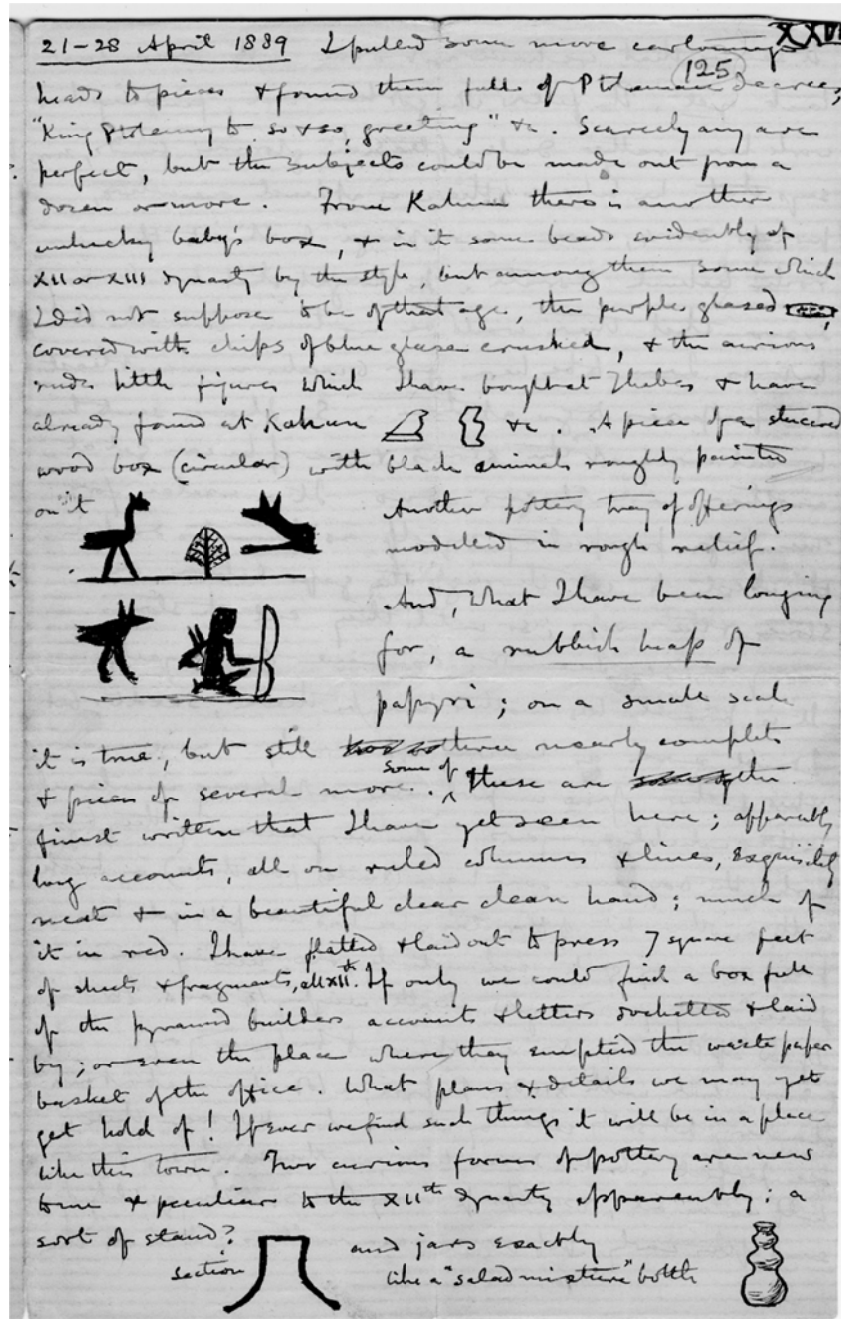 XXVI
21-28 April 1889 I pulled some more cartonnage
125
heads to pieces & found them full of Ptolemaic decrees,
"King Ptolemy to so & so, greeting" &c. Scarcely any are
perfect, but the subjects could be made out from a
dozen or more. From Kahun there is another
unlucky baby's box, & in it some beads evidently of
XII or XIII dynasty by the style, but among them some which
I did not suppose to be of that age, the purple glazed
covered with chips of blue glaze crushed, & the curious
rude little figures which I have bought at Thebes & have
already found at Kahun &c. A piece of a stuccoed
wood box (circular) with black animals roughly painted
on it
Another pottery tray of offerings
modelled in rough relief.
And, what I have been longing
for, a rubbish heap of
papyri; on a small scale
it is true, but still three nearly complete
& pieces of several more. some of these are the
finest written that I have yet seen here; apparently
long accounts, all on ruled columns & lines, exquisitely
neat & in a beautiful clear clean hand; much of
it in red. I have flatted & laid out to press 7 square feet
of sheets & fragments, all XIIth. If only we could find a box full
of the pyramid builders accounts & letters docketted & laid
by; or even the place where they emptied the waste paper
basket of the office. What plans & details we may yet
get hold of! If ever we find such things it will be in a place
like this town. Two curious forms of pottery are new
to me & peculiar to the XIIth dynasty apparently: a
sort of stand?
section
and jars exactly
like a "salad mixture" bottle